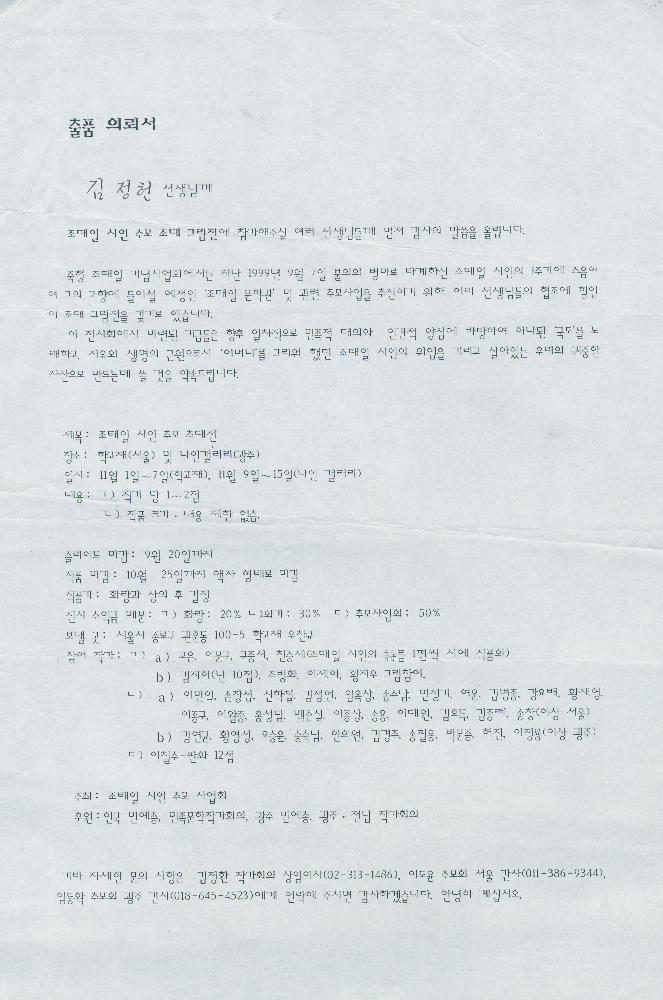 출품 의뢰서
김정헌 선생님께
조태일 시인 추모 초대 그림전에 참가해주실 여러 선생님들께 먼저 감사의 말씀을 올립니다.
죽형 조태일 기념사업회에서는 지난 1999년 9월 7일 불의의 병마로 타계하신 조태일 시인의 1주기에 즈음하
여 그의 고향에 들어설 예정인 '조태일 문학관' 및 관련 추모사업을 추진하기 위해 여러 선생님들의 협조에 힘입
어 초대 그림전을 갖기로 했습니다.
이 전시회에서 마련된 기금들은 향후 일차적으로 민족적 대의와 인간적 양심에 바탕하여 하나된 '국토'를 노
래하고, 자유와 생명의 근원으로서 '어머니'를 그리워 했던 조태일 시인의 위업을 기리고 살아있는 우리의 귀중한
자산으로 만드는데 쓸 것을 약속드립니다.
제목 : 조태일 시인 추모 초대전
장소 : 학고재(서울) 및 나인갤러리(광주)
일시 : 11월 1일~7일(학고재), 11월 9일~15일(나인 갤러리)
내용 : ㄱ) 작가 당 1~2점
ㄴ) 작품 크기 · 내용 제한 없음.
슬라이드 마감 : 9월 20일까지
작품 마감 : 10월 25일까지 액자 형태로 마감
작품가 : 화랑과 상의 후 결정
전시 수익금 배분 : ㄱ) 화랑 : 20% ㄴ)화가 : 30% ㄷ) 추모사업회 : 50%
보낼 곳 : 서울시 종로구 관훈동 100-5 학고재
참여 작가 : ㄱ) a) 고은, 이문구, 구중서, 천승세(조태일 시인의 1편씩 시에 작품화)
b) 김지하(난 10점), 조병화, 이제하, 황지우 그림참여.
ㄴ) a) 이만익, 손장섭, 신학철, 김정헌, 임옥상, 송수남, 민정기, 여운, 김병종, 강요배, 황재형,
이종구, 이왈종, 홍성담, 송용, 이대원, 김호득, 송창(이상 서울)
b) 강연균, 황영성, 오승윤, 송수남, 한희원, 김경주, 송필용, 박문종, 허진, (이상 광주)
ㄷ) 이철수-판화 12점
주최 : 조태일 시인 추모 사업회
후원 : 한국 민예총, 민족문학작가회의, 광주 민예총, 광주 · 전남 작가회의
기타 자세한 문의 사항은 김정환 작가회의 상임이사(02-313-1486), 이도윤 추모회 서울 간사(011-386-9344),
임동확 추모회 광주 간사(018-645-4523)에게 연락해 주시면 감사하겠습니다. 안녕히 계십시오.